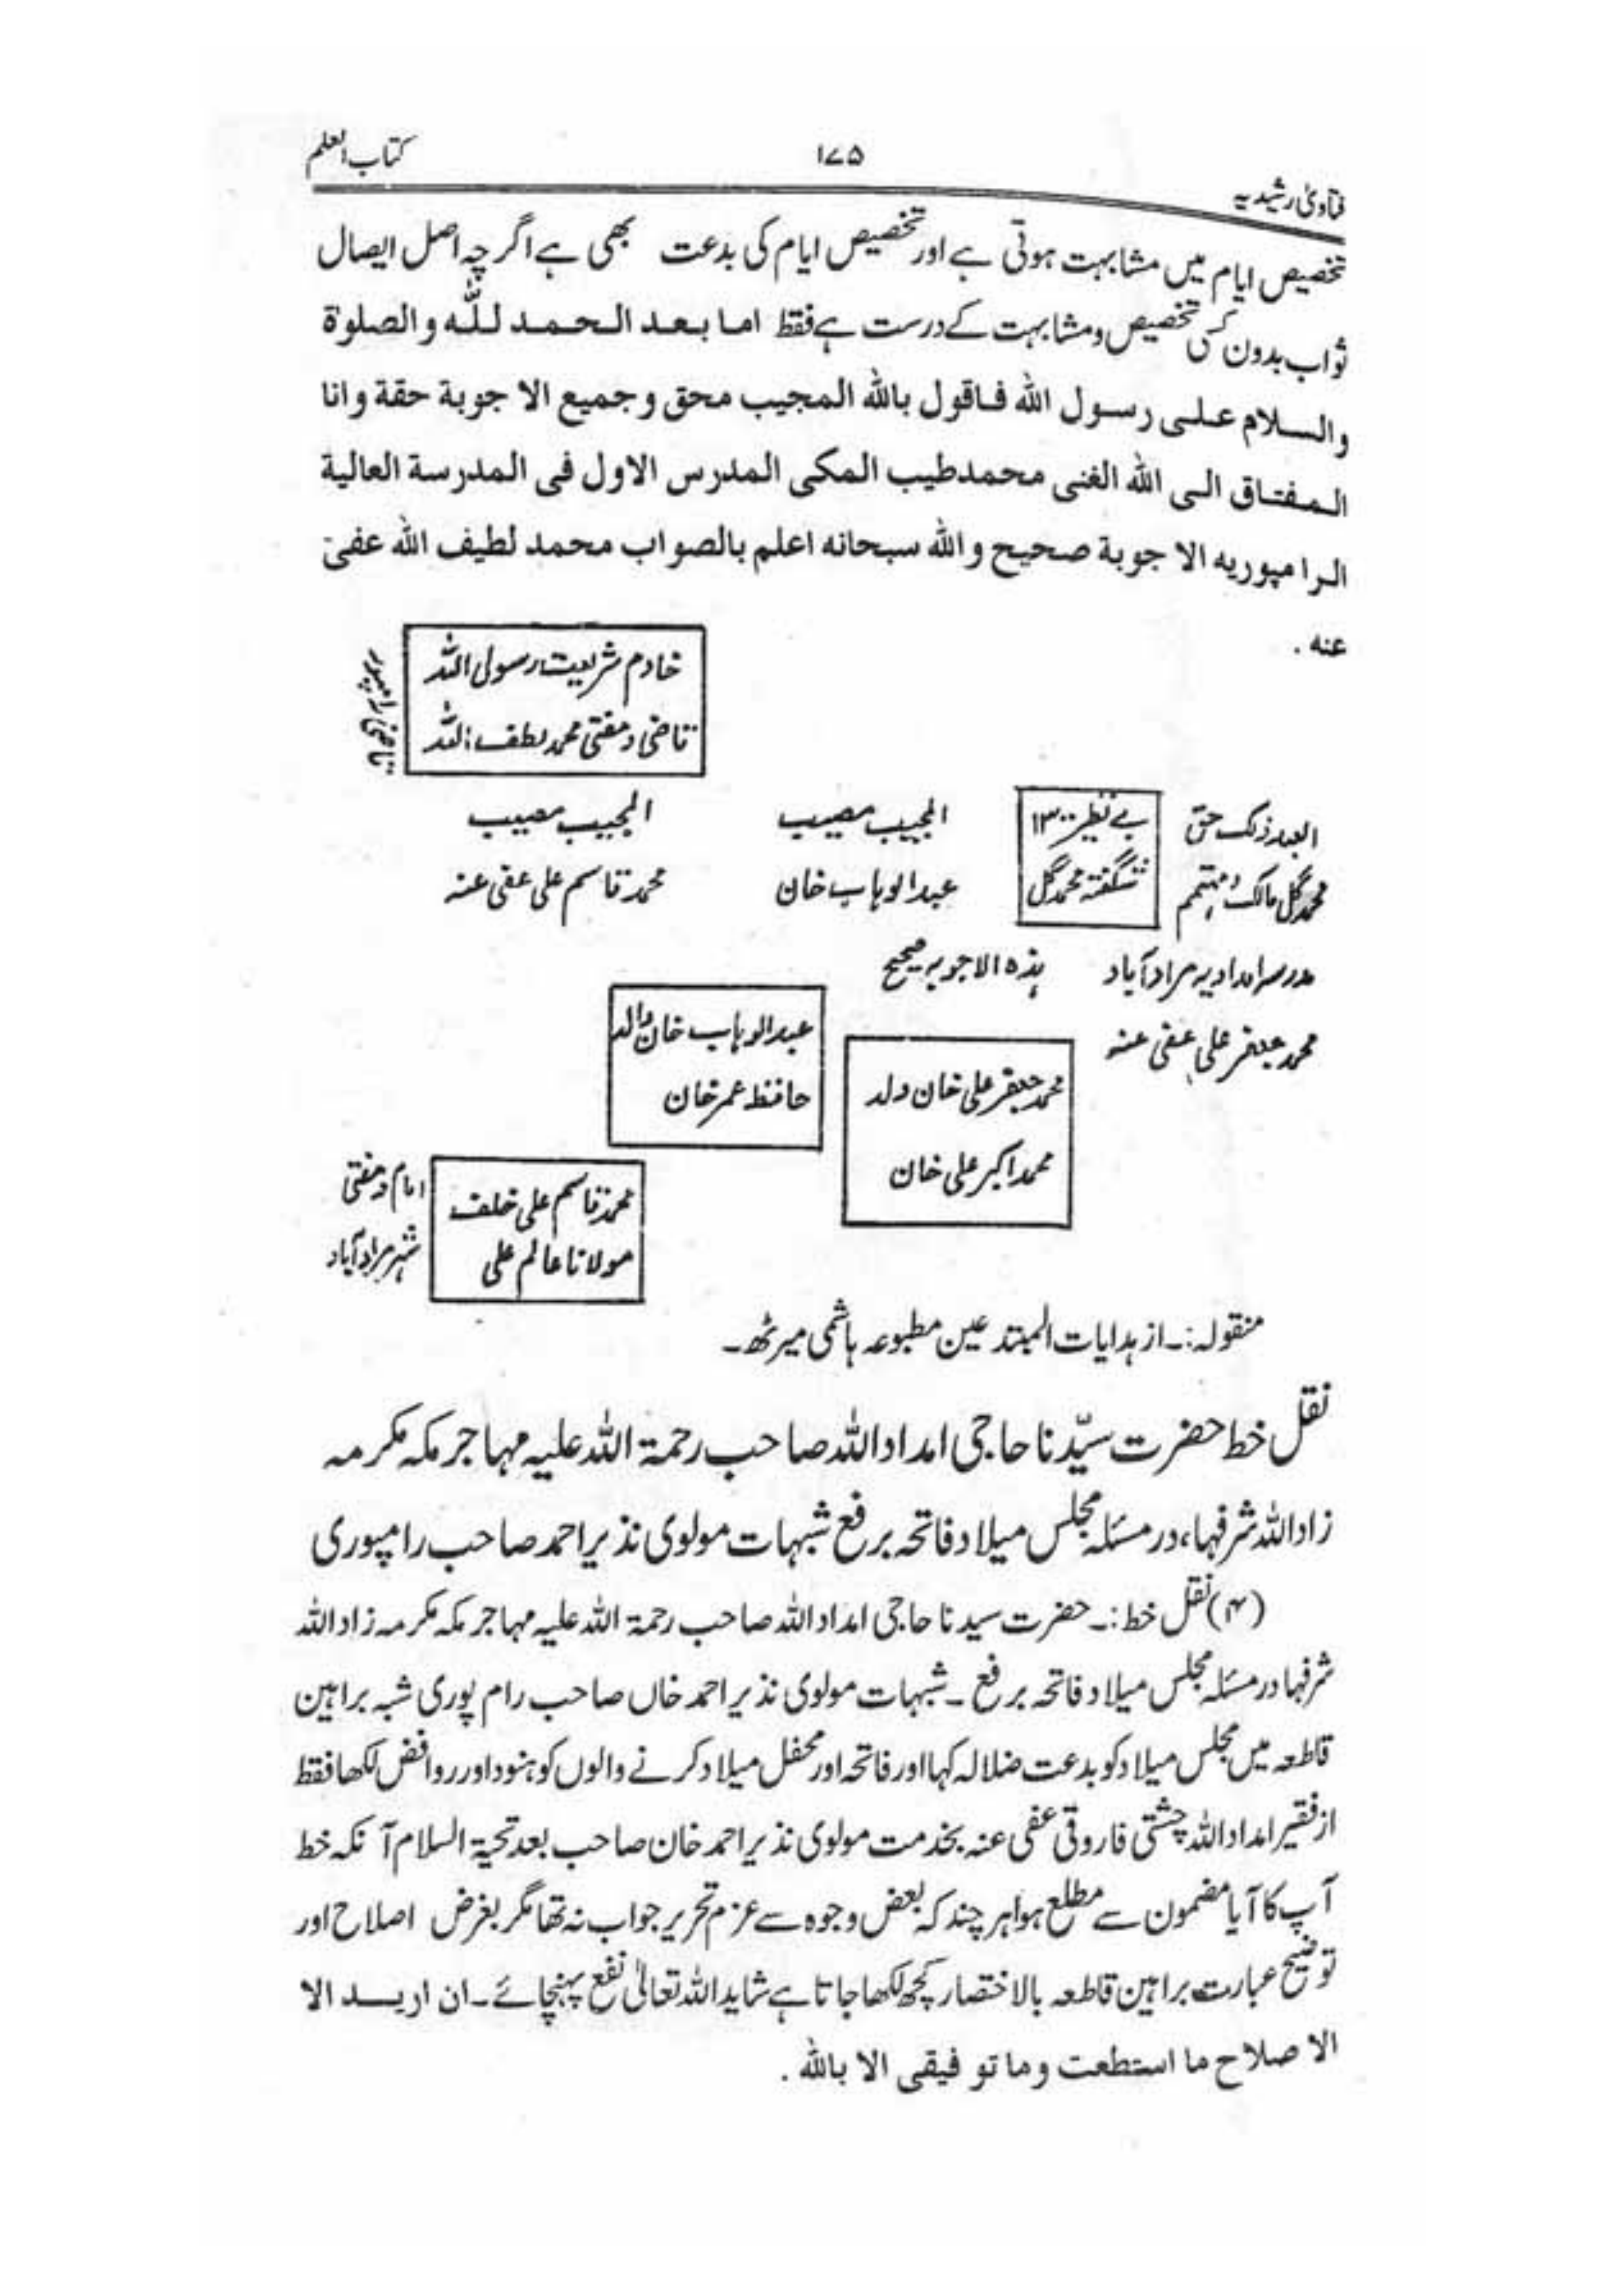 فتاویٰ رشیدیہ ۱۷۵ کتاب العلم
تخصیص ایام میں مشابہت ہوتی ہے اور تخصیص ایام کی بدعت بھی ہے اگر چہ اصل ایصال
ثواب بدون کسی تخصیص و مشابہت کے درست ہے فقط اما بعد الحمد للّٰہ و الصلوۃ
والسلام علی رسول اللہ فاقول باللہ المجیب محق و جمیع الا جوبة حقة و انا
المفتاق الی اللہ الغنی محمد طیب المکی المدرس الاول فی المدرسة العالیة
الرامپوریہ الا جوبة صحیح و اللہ سبحانه اعلم بالصواب محمد لطیف اللہ عفی
عنه .
خادم شریعت رسول اللہ
قاضی و مفتی محمد لطف اللہ
قاضی رامپور
العبد ذلک حق
محمد گل مالک و مہتمم
بے نظیر ۱۳۰۰
شگفتہ محمد گل
المجیب مصیب
عبدالوہاب خان
المجیب مصیب
محمد قاسم علی عفی عنہ
مدرسہ امدادیہ مراد آباد
ہذہ الاجوبہ صحیح
محمد جعفر علی عفی عنہ
محمد جعفر علی خان ولد
محمد اکبر علی خان
عبدالوہاب خان والد
حافظ عمر خان
محمد قاسم علی خلف
مولانا عالم علی
امام و مفتی
شہر مراد آباد
منقولہ:۔ از ہدایات المبتدعین مطبوعہ ہاشمی میرٹھ۔
نقل خط حضرت سیّدنا حاجی امداد اللہ صاحب رحمۃ اللہ علیہ مہاجر مکہ مکرمہ
زاد اللہ شرفہا، در مسئلہ مجلس میلاد فاتحہ بر رفع شبہات مولوی نذیر احمد صاحب رامپوری
(۴) نقل خط:۔ حضرت سیدنا حاجی امداد اللہ صاحب رحمۃ اللہ علیہ مہاجر مکہ مکرمہ زاد اللہ
شرفہا در مسئلہ مجلس میلاد فاتحہ بر رفع ۔ شبہات مولوی نذیر احمد خاں صاحب رام پوری شبہ براہین
قاطعہ میں مجلس میلاد کو بدعت ضلالہ کہا اور فاتحہ اور محفل میلاد کرنے والوں کو ہنود اور روافض لکھا فقط
از فقیر امداد اللہ چشتی فاروقی عفی عنہ بخدمت مولوی نذیر احمد خان صاحب بعد تحیۃ السلام آنکہ خط
آپ کا آیا مضمون سے مطلع ہوا ہر چند کہ بعض وجوہ سے عزم تحریر جواب نہ تھا مگر بغرض اصلاح اور
توضیح عبارت براہین قاطعہ بالاختصار کچھ لکھا جاتا ہے شاید اللہ تعالیٰ نفع پہنچائے۔ ان ارید الا
الا صلاح ما استطعت و ما تو فیقی الا باللہ .